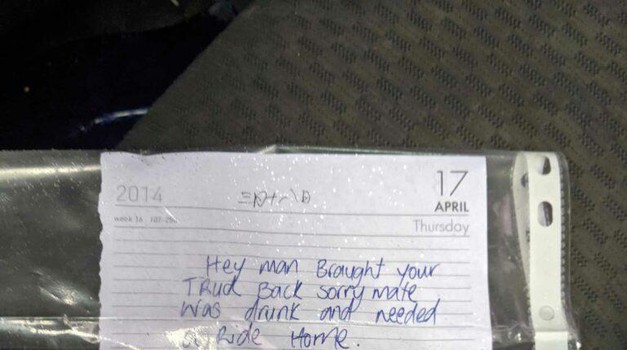 2014
17
APRIL
Thursday
Hey man Braught your
TRuck Back sorry mate
Was drunk and needed
a Ride Home.